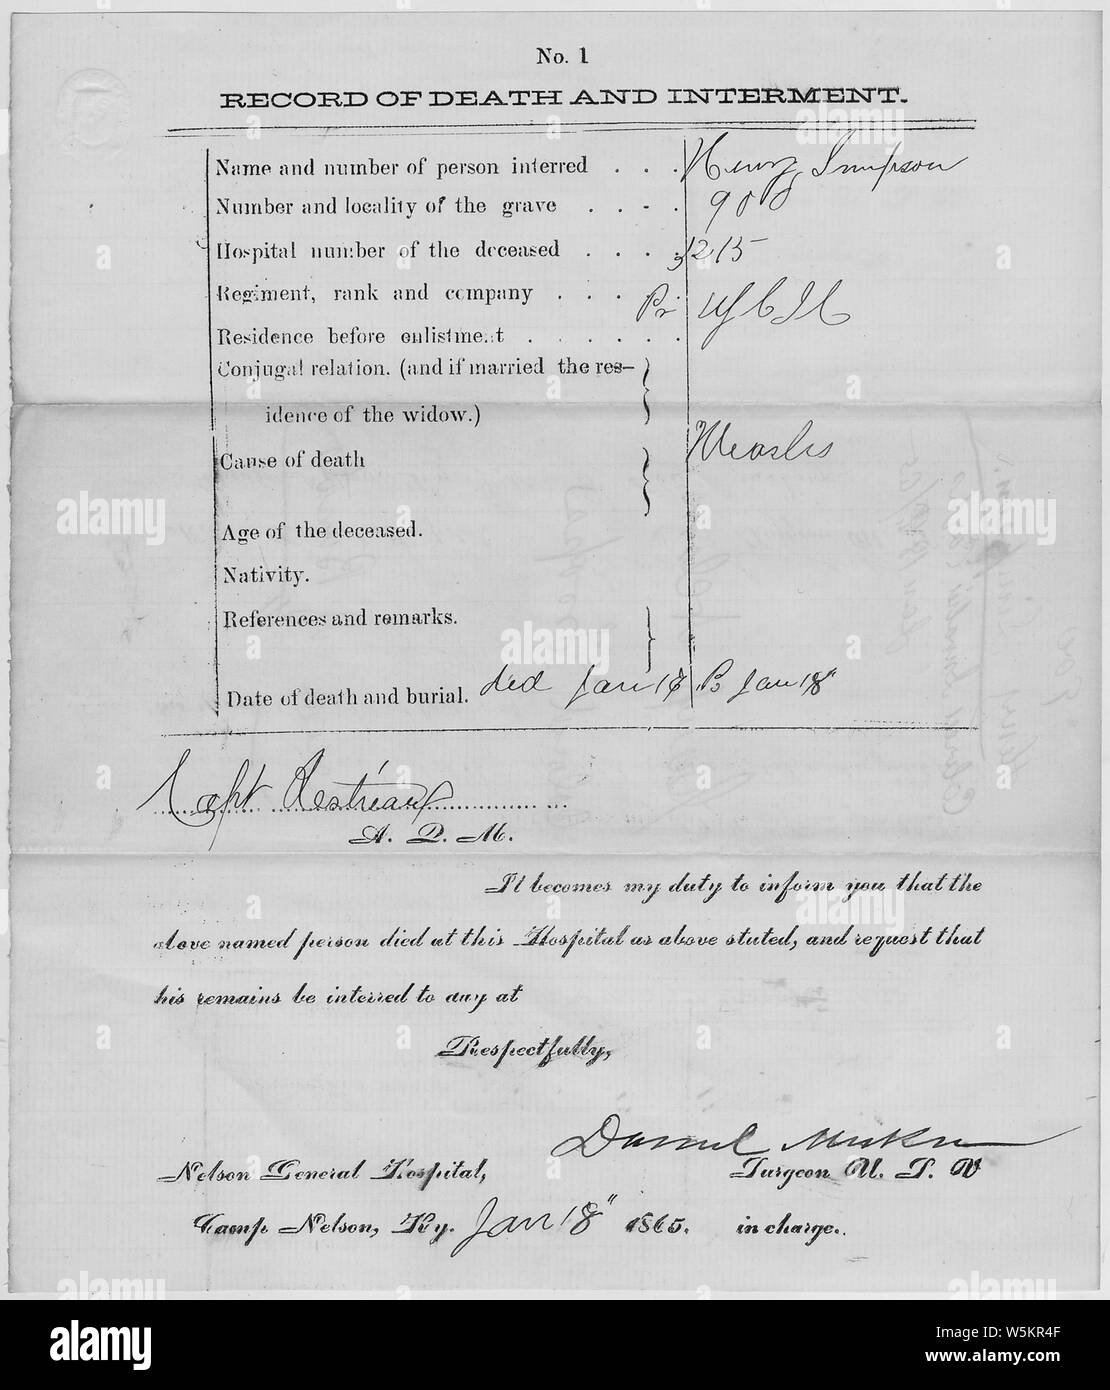 No. 1
RECORD OF DEATH AND INTERMENT.
Name and number of person interred . . . Henry Simpson
Number and locality of the grave . . . . 900
Hospital number of the deceased . . . . 3215
Regiment, rank and company . . . . Pr
Residence before enlistment . . . . . .
Conjugal relation. (and if married the res-
idence of the widow.)
Cause of death Measles
Age of the deceased.
Nativity.
References and remarks.
Date of death and burial. died Jan 18 B Jan 18"
Capt Restieaux
A. Q. M.
It becomes my duty to inform you that the
above named person died at this Hospital as above stated, and request that
his remains be interred to day at
Respectfully,
Surgeon U. S. V
Nelson General Hospital,
Camp Nelson, Ky. Jan 18" 1865. in charge.
alamy
alamy
W5KR4F
www.alamy.com